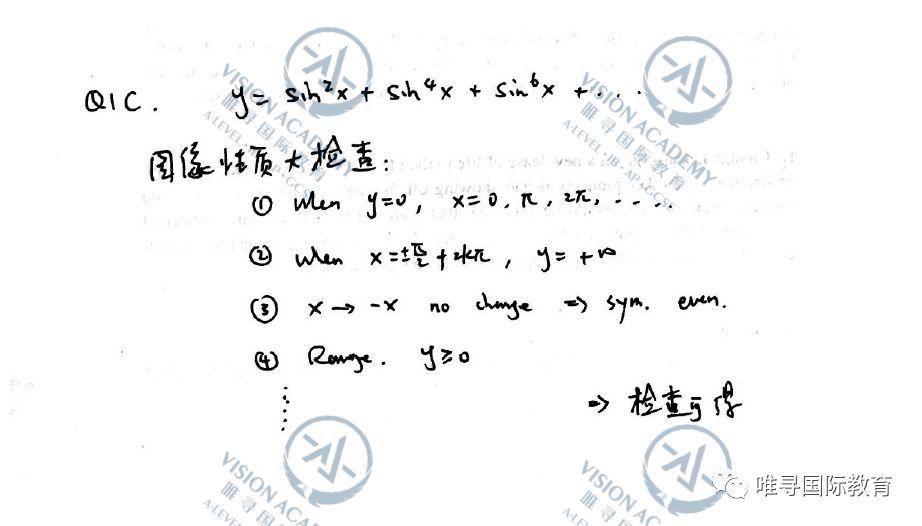 Q1C. y = sin²x + sin⁴x + sin⁶x + ...
图像性质大检查:
① when y=0, x=0, π, 2π, .....
② when x=±π/2+2kπ, y=+∞
③ x → -x no change ⇒ sym. even.
④ Range. y≥0
⇒ 检查可得
VISION ACADEMY
唯寻国际教育
A-LEVEL·IB·AP·GCSE
VISION ACADEMY
唯寻国际教育
A-LEVEL·IB·AP·GCSE
VISION ACADEMY
唯寻国
A-LEVEL
VISION ACADEMY
唯寻国
A-LEV
唯寻国际教育